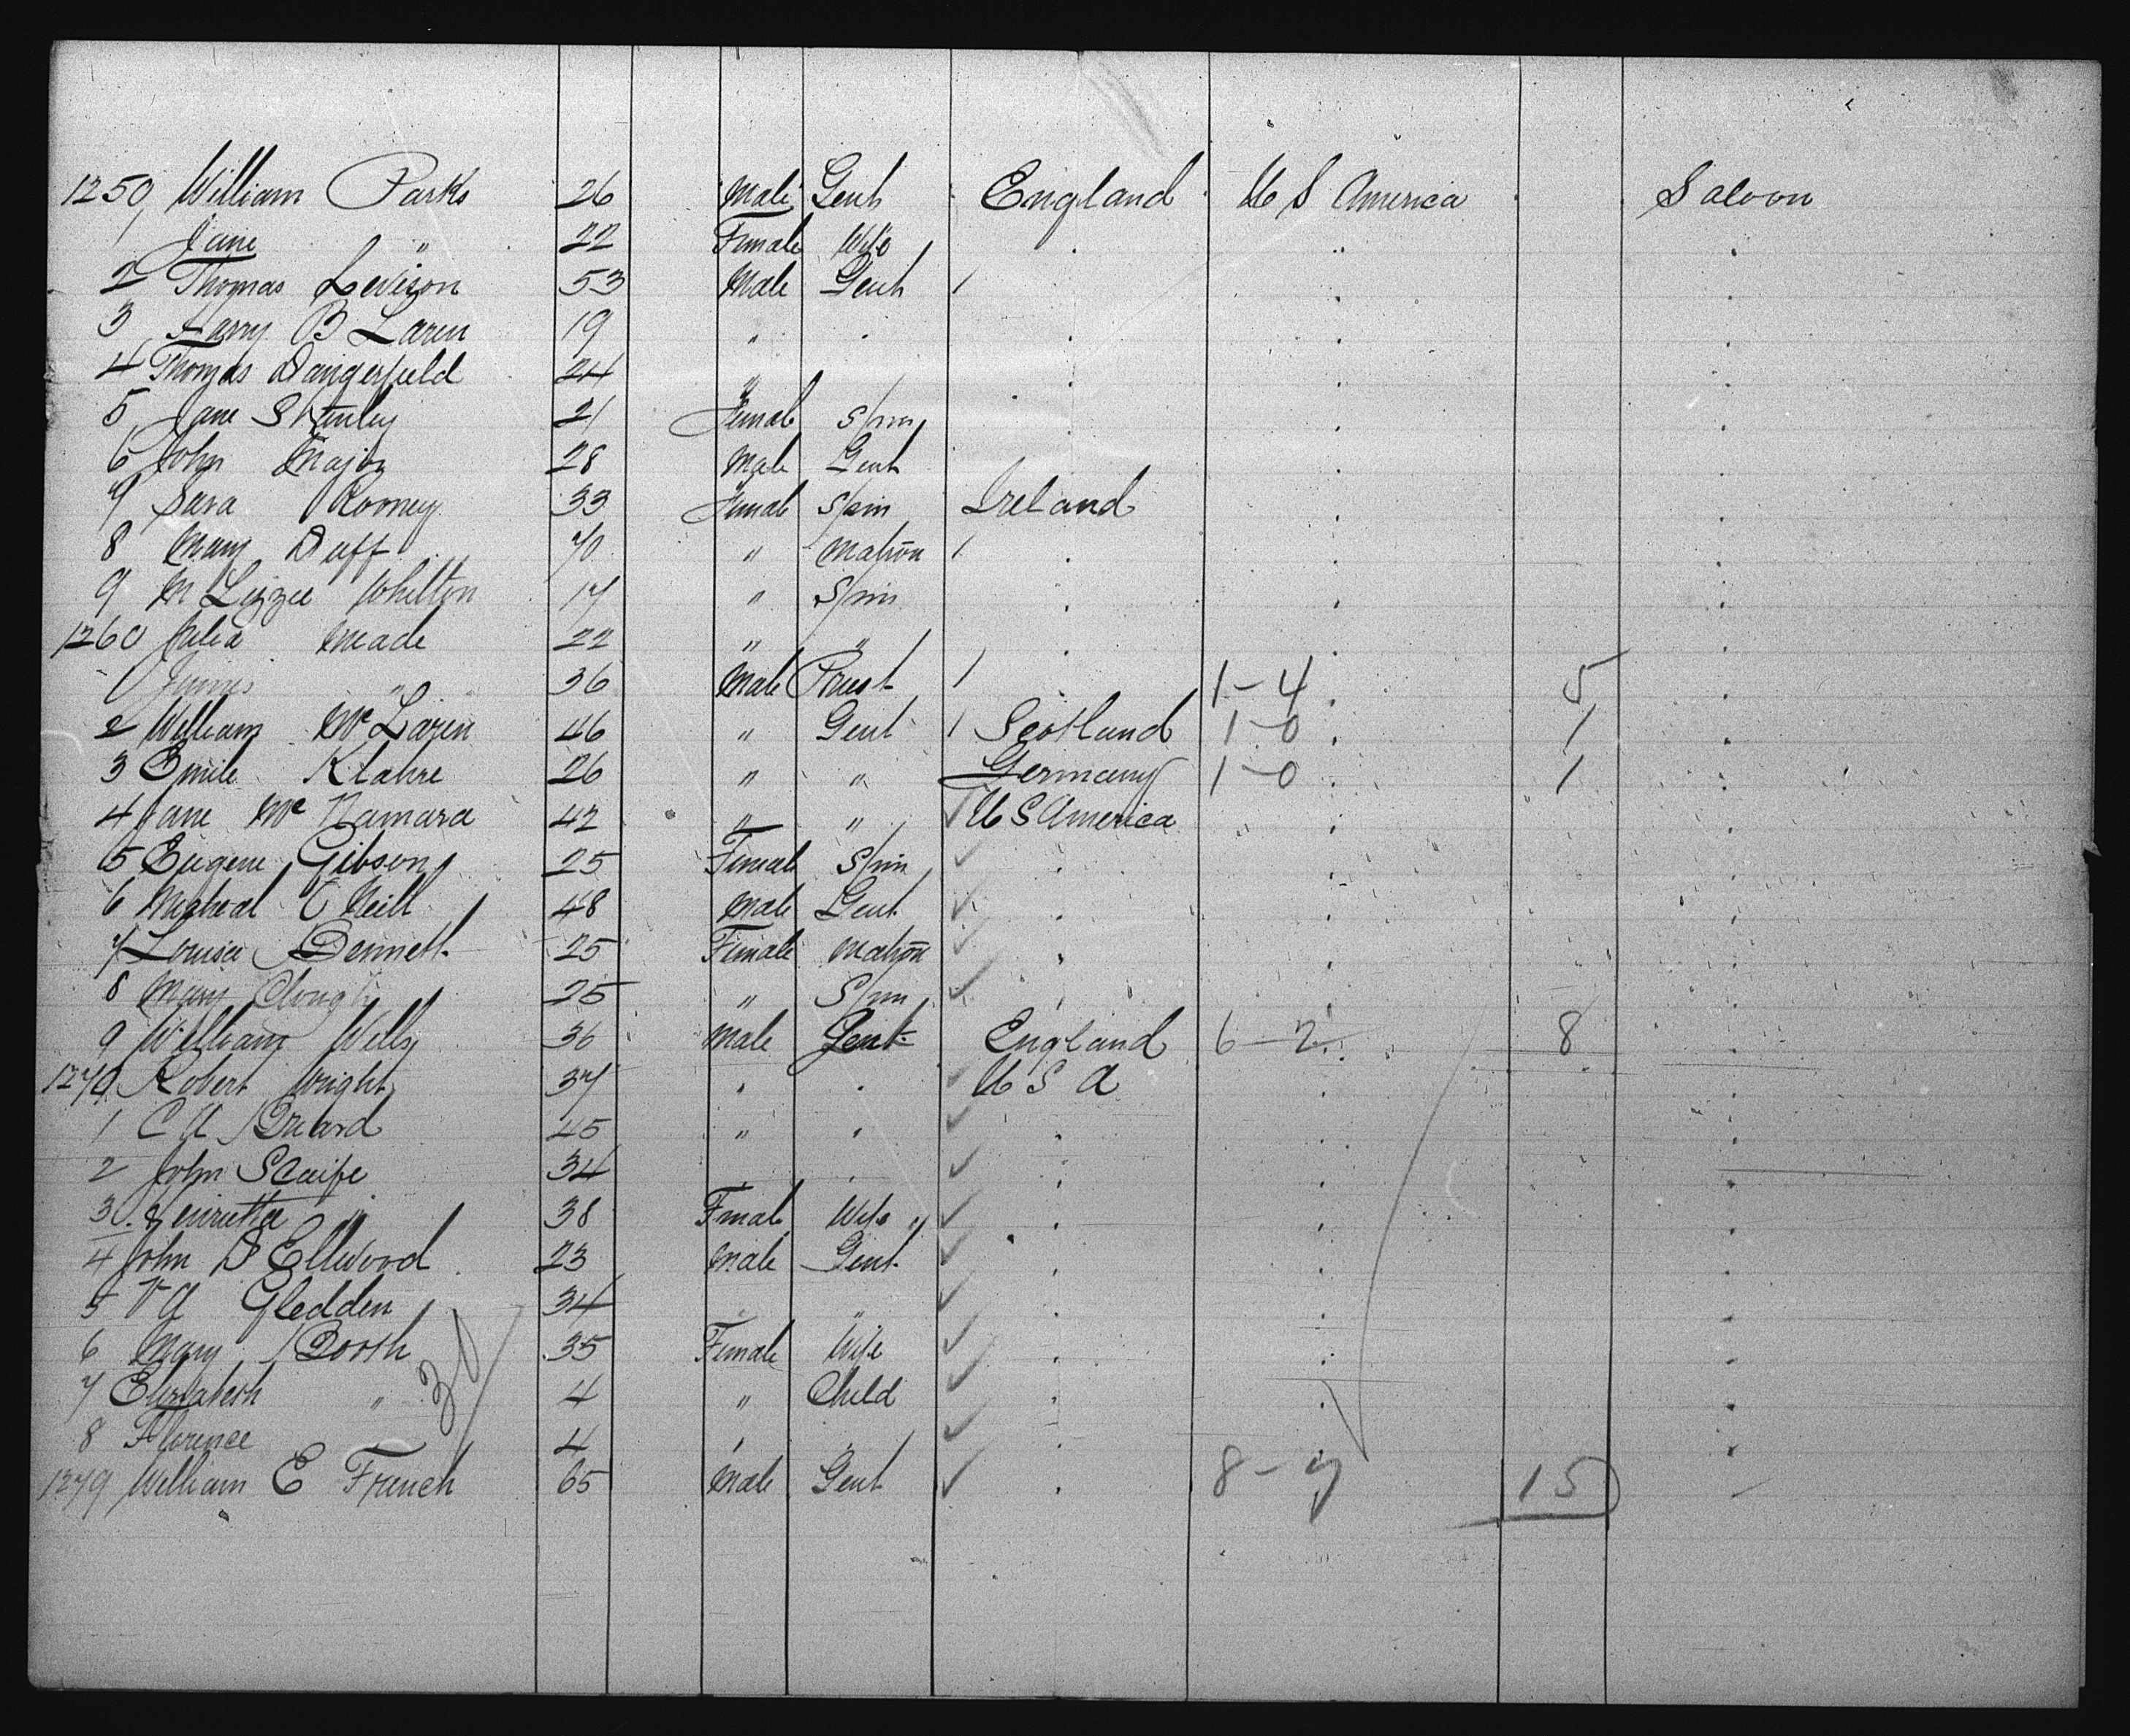 1250 William Parks 26 Male Gent England U S America Saloon
1 Jane " 22 Female Wife " "
2 Thomas Levison 53 Male Gent / " "
3 Harry B Laren 19 " " " " "
4 Thomas Dangerfield 24 " " " "
5 Jane Stenley 21 Female Spin " " "
6 John Major 28 Male Gent " "
7 Sara Romney 33 Female Spin Ireland " "
8 Mary Duff 70 " Matron / " " "
9 M Lizzee Whelton 17 " Spin " " "
1260 Julia Meade 22 " " " " "
1 James " 36 Male Priest / 1-4 " 5 "
2 William McLaren 46 " Gent / Scotland 1-0 " 1 "
3 Emile Klahre 26 " " Germany 1-0 " 1 "
4 Jane McNamara 42 " " U S America " "
5 Eugene Gibson 25 Female Spin " " "
6 Micheal O Neill 48 Male Gent " " "
7 Louisa Bennett 25 Female Matron " " "
8 Mary Clough 25 " Spin " " "
9 William Wells 36 Male Gent England 6-2 " 8 "
1270 Robert Wright 37 " " U S A " "
1 C A 45 " " " " "
2 John Scaife 34 " " " "
3 Henrietta " 38 Female Wife " " " "
4 John D Ellwood 23 Male Gent " " "
5 V A Gledden 34 " " " " "
6 Mary Booth 35 Female Wife " " "
7 Elizabeth " 30 4 " Child " " "
8 Florence 4 " " " "
1279 William E French 65 Male Gent " 8-7 15